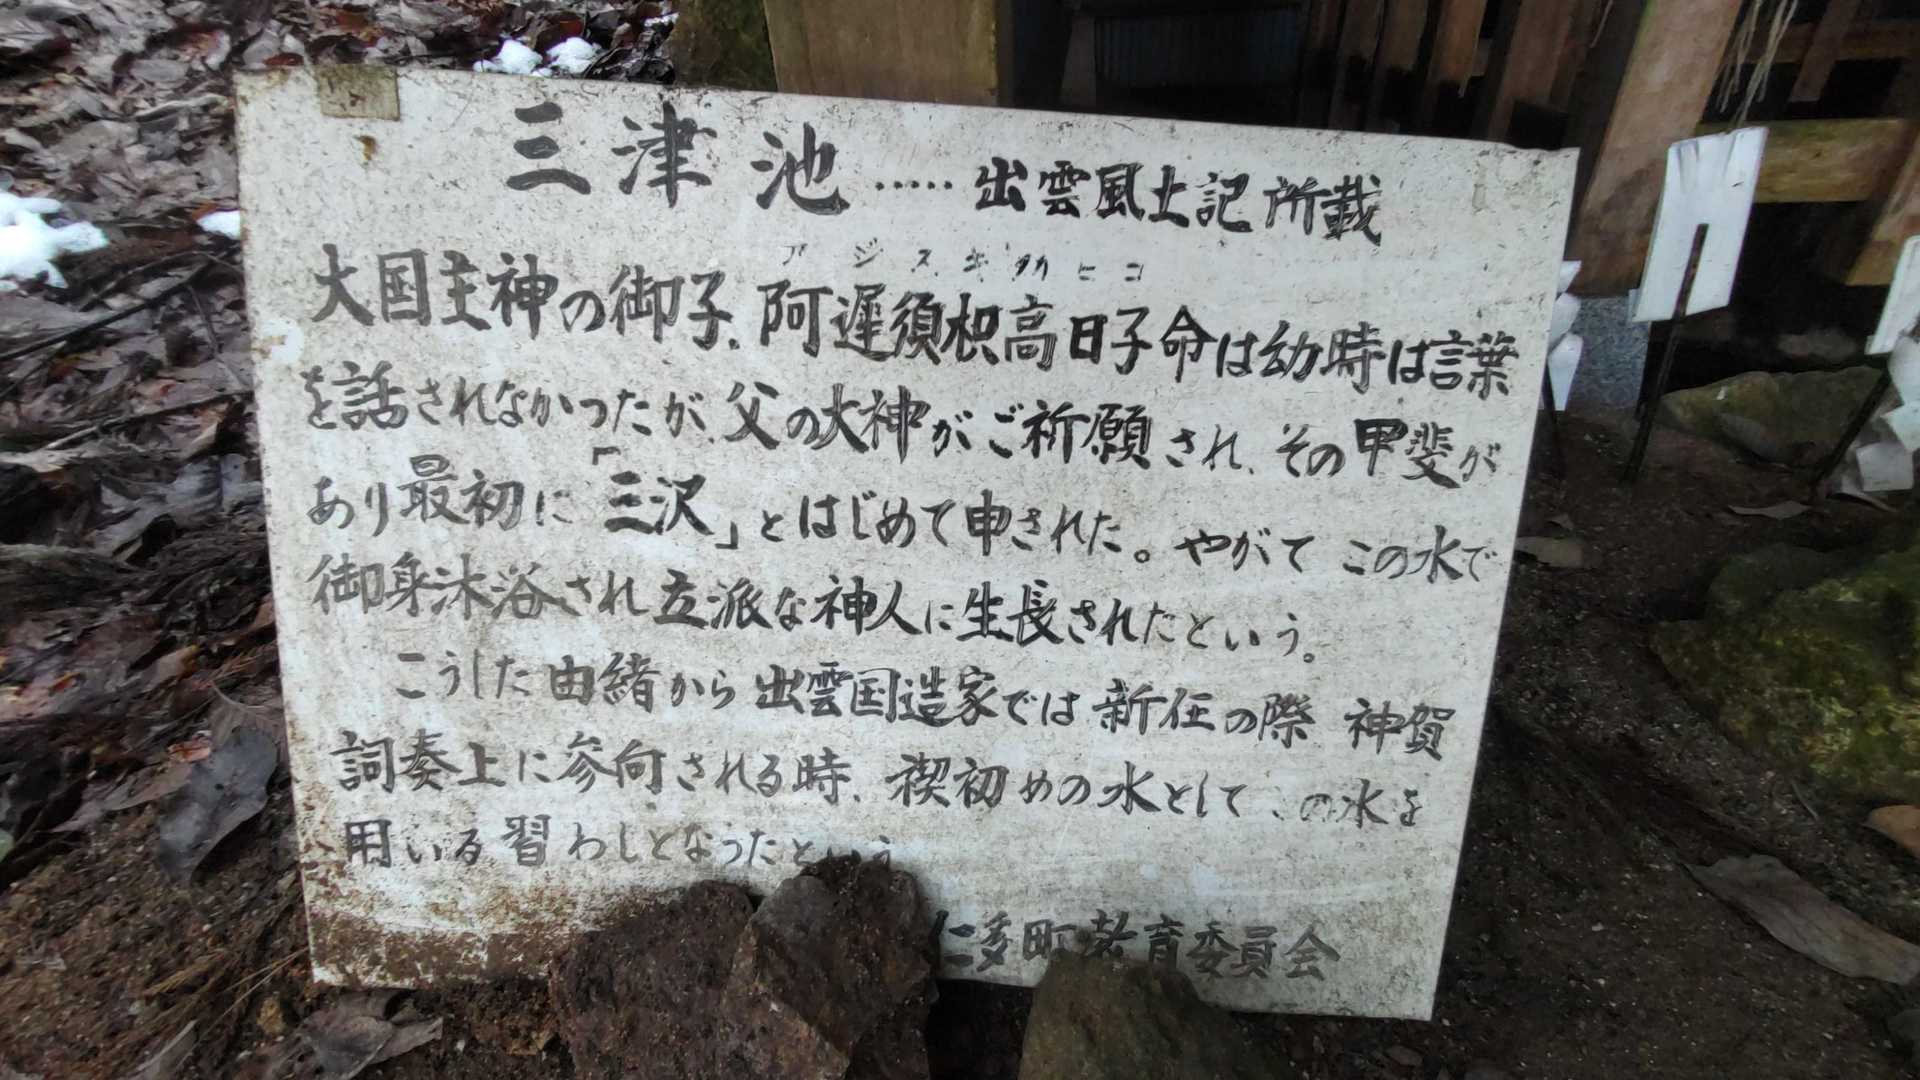 三津池‥‥‥出雲風土記所載
アジスキタカヒコ
大国主神の御子、阿遅須枳高日子命は幼時は言葉
を話されなかったが、父の大神がご祈願され、その甲斐が
あり最初に「三沢」とはじめて申された。やがてこの水で
御身沐浴され立派な神人に生長されたという。
こうした由緒から出雲国造家では新任の際 神賀
詞奏上に参向される時、禊初めの水として、この水を
用いる習わしとなったという
仁多町教育委員会